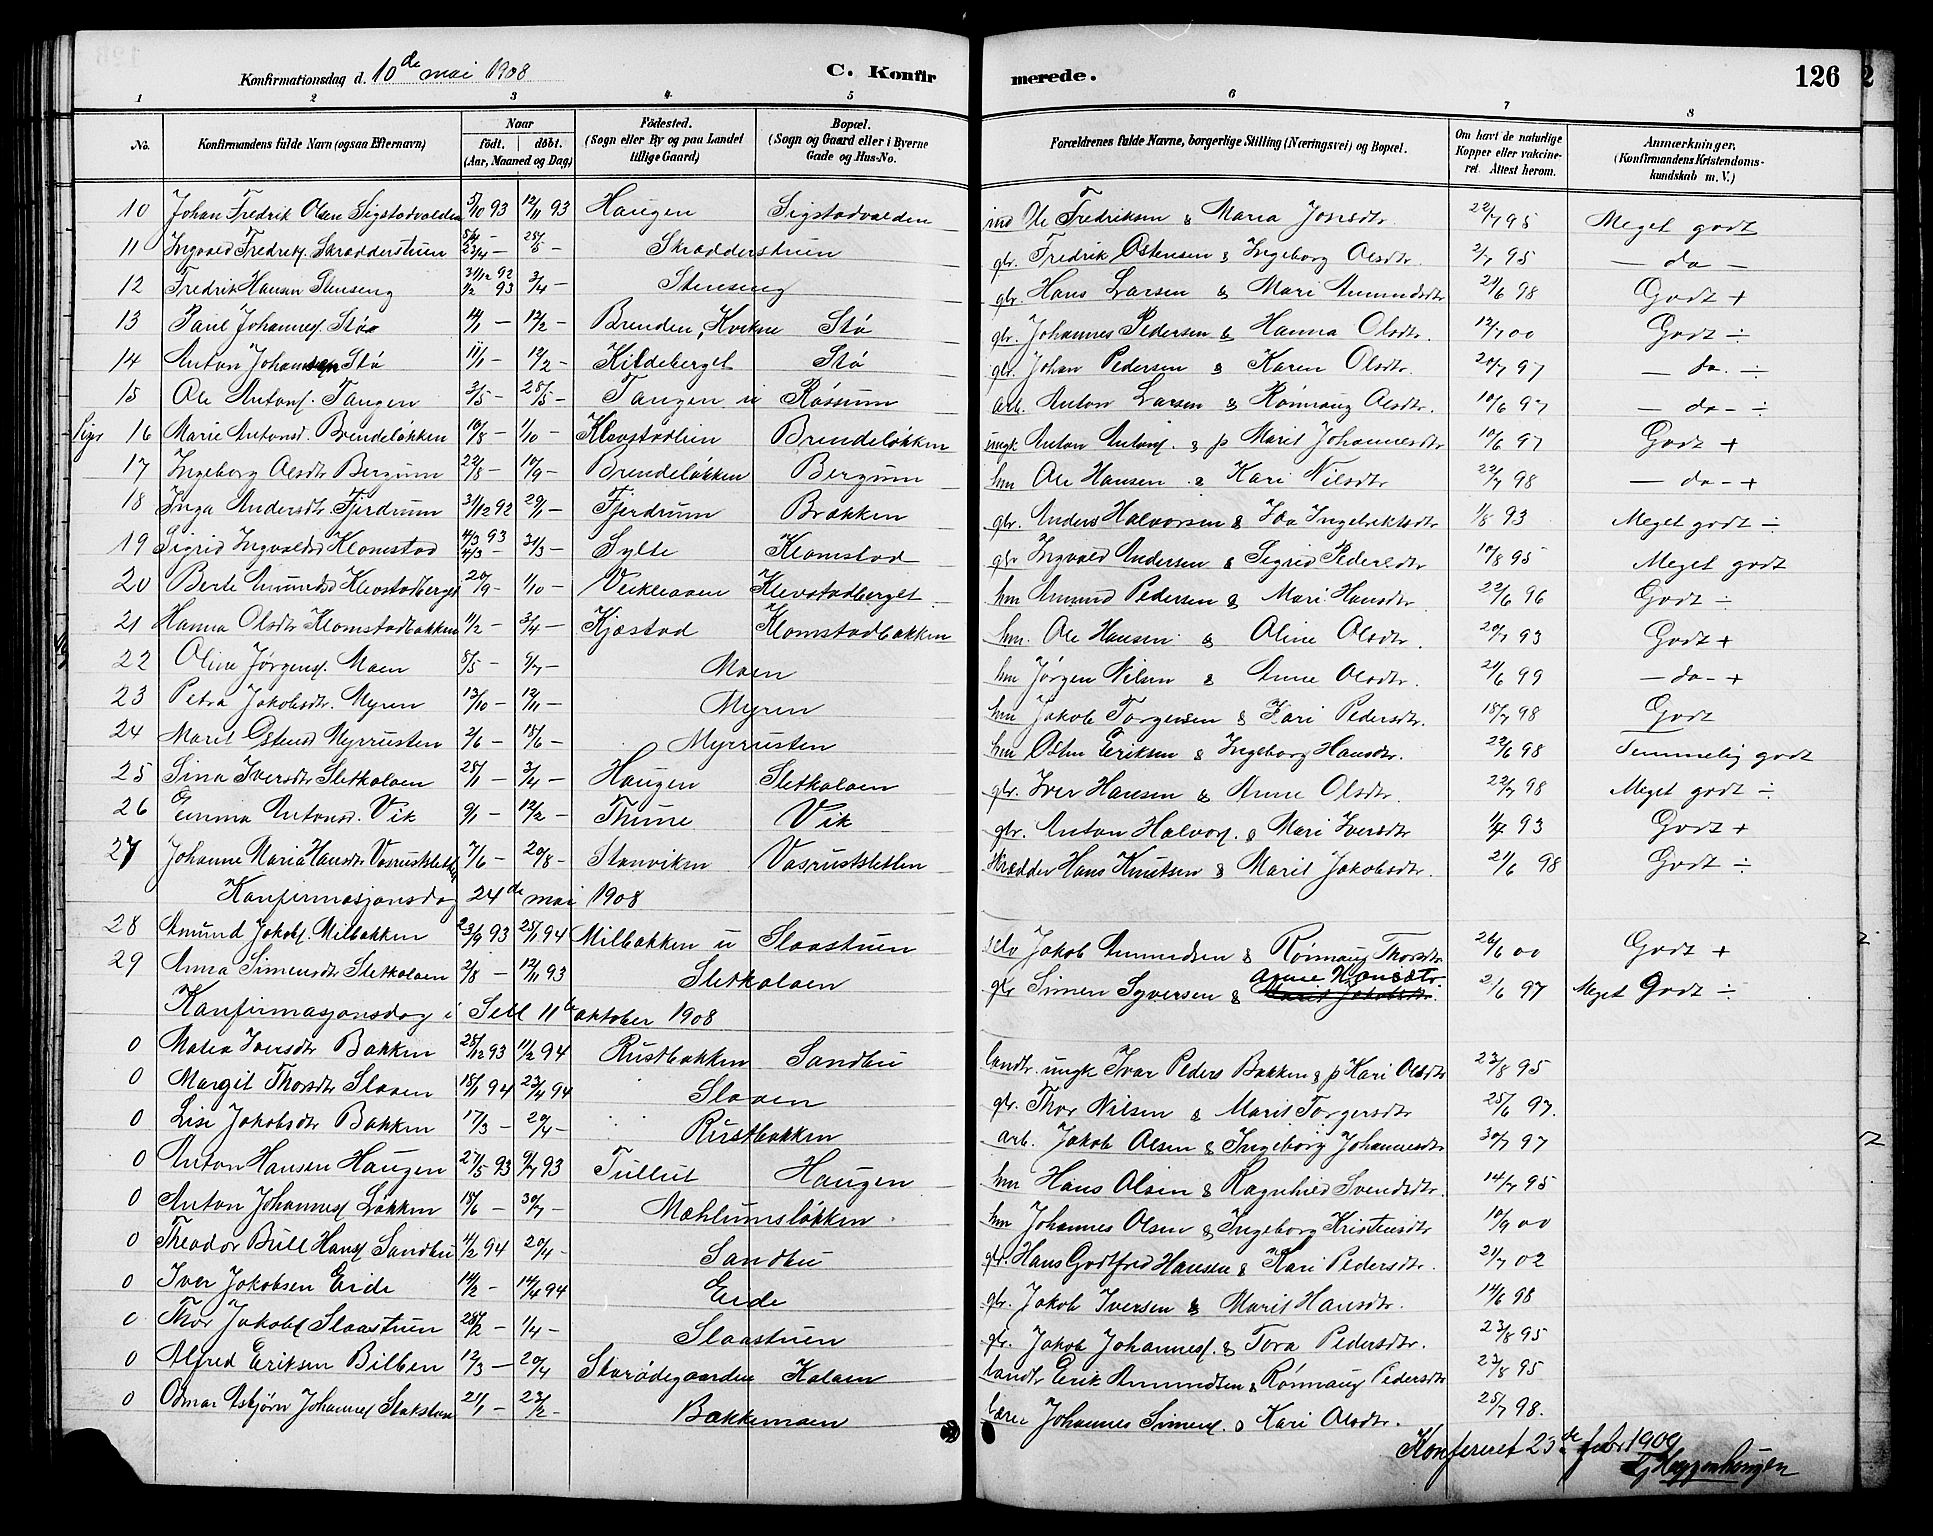 Konfirmationsdag d. 10de mai 1908 C. Konfirmerede. 126
1 2 3 4 5 6 7 8
No. Konfirmandens fulde Navn (ogsaa Efternavn) Naar født. døbt. (Aar, Maaned og Dag) Fødested. (Sogn eller By og paa Landet tillige Gaard) Bopæl. (Sogn og Gaard eller i Byerne Gade og Hus-No. Forældrenes fulde Navne, borgerlige Stilling (Næringsvei) og Bopæl. Om havt de naturlige Kopper eller vakcineret. Attest herom. Anmærkninger, (Konfirmandens Kristendomskundskab m. V.)
10 Johan Fredrik Olsen Sigstadvolden 5/10 93 12/11 93 Haugen Sigstadvolden ind Ole Fredriksen & Maria Jonsdtr 22/7 95 Meget godt
11 Ingvald Fredriks. Skrædderstuen 23/4 — 28/5 — Skrædderstuen gbr. Fredrik Ostensen & Ingeborg Olsdtr. 2/7 95 — do —
12 Fredrik Hansen Stenseng 31/12 92 1/2 93 3/4 — Stenseng gbr. Hans Larsen & Mari Amundsdtr 24/6 98 Godt +
13 Paul Johannes. Stø 14/1 — 12/2 — Brenden, Kvikne Stø gbr. Johannes Pedersen & Hanna Olsdtr. 12/7 00 Godt ÷
14 Anton Johansen Stø 11/1 — 12/2 — Kildeberget Stø gbr. Johan Pedersen & Karen Olsdtr. 20/7 97 — do. ÷
15 Ole Antons. Tangen 3/5 — 28/5 — Tangen u Røssum arb. Anton Larsen & Rønnaug Olsdtr. 10/6 97 — do — ÷
16 Marie Antonsd. Brendeløkken 10/8 — 1/10 — Klevstadlien Brendeløkken ungk Anton Antons. & p Marit Johannesdtr 10/6 97 Godt +
17 Ingeborg Olsdtr Bergum 22/8 — 17/9 — Brendeløkken Bergum hm Ole Hansen & Kari Nilsdtr 22/7 98 — do — +
18 Inga Andersdtr Fjerdrum 31/12 92 29/1 — Fjerdrum Brækken gbr. Anders Halvorsen & Ida Ingebriktsdtr 1/8 93 Meget godt ÷
19 Sigrid Ingvaldsd Klomstad 4/3 93 31/3 — Sylte Klomstad gbr Ingvald Andersen & Sigrid Pedersdtr 10/8 95 Meget godt
20 Berte Amundsd Klevstadberget 20/9 — 1/10 — Veikleaaen Klevstadberget hm Amund Pedersen & Mari Hansdtr 22/6 96 Godt ÷
21 Hanna Olsdtr Klomstadbakken 11/2 — 3/4 — Kjæstad Klomstadbakken hm. Ole Hansen & Oline Olsdtr. 20/7 93 Godt +
22 Oline Jørgens. Moen 8/5 — 9/7 — Moen hm Jørgen Nilsen & Anne Olsdtr. 21/6 99 — do — +
23 Petra Jakobsdtr. Myren 13/10 — 12/11 — Myren hm Jakob Torgersen & Kari Pedersdtr. 18/7 98 Godt
24 Marit Ostensd Myrrusten 2/6 — 18/6 — Myrrusten hm Osten Eriksen & Ingeborg Hansdtr. 22/6 98 Temmelig godt
25 Sina Iversdtr Sletkolaen 28/1 — 3/4 — Haugen Sletkolaen gbr. Iver Hansen & Anne Olsdtr. 22/7 98 Meget godt ÷
26 Emma Antonsd. Vik 9/1 — 12/2 — Thune Vik gbr. Anton Halvors. & Mari Iversdtr 93 Godt +
27 Johanne Maria Hansdtr Vasrustsletten 7/6 — 20/8 — Stenviken Vasrustsletten skrædder Hans Knutsen & Marit Jakobsdtr. 21/6 98 Godt ÷
Konfirmasjonsdag 24de mai 1908
28 Amund Jakobs. Milbakken 23/9 93 28/1 94 Milbakken u Slaastuen selv Jakob Amundsen & Rønnaug Thorsdtr 26/6 00 Godt +
29 Anna Simensdtr Sletkolaen 2/8 — 12/11 93 Sletkolaen gbr Simen Syversen & Anne Hansdtr. 2/6 97 Meget Godt ÷
Konfirmasjonsdag i Sell 11te oktober 1908
0 Matea Iversdtr Bakken 28/12 93 11/2 94 Rustbakken Sandbu landtr. ungk Ivar Peders Bakken & p Kari Olsdtr 23/8 95
0 Margit Thorsdtr Slaaen 18/1 94 23/4 94 Slaaen gbr. Thor Nilsen & Marit Torgersdtr 25/6 97.
0 Lise Jakobsdtr Bakken 17/3 — 20/4 — Rustbakken arb. Jakob Olsen & Ingeborg Johannesdtr 30/7 97
0 Anton Hansen Haugen 27/5 93 9/7 93 Tullut Haugen hm Hans Olsen & Ragnhild Svendsdtr. 14/7 95
0 Anton Johannes Løkken 18/6 — 30/7 — Mæhlumsløkken hm Johannes Olsen & Ingeborg Kristensdtr 10/9 00
0 Theodor Bull Hans Sandbu 14/2 94 20/4 — Sandbu gbr. Hans Godtfred Hansen & Kari Pedersdtr. 21/7 02
0 Iver Jakobsen Eide 14/2 — 14/4 94 Eide gbr. Jakob Iversen & Marit Hansdtr. 14/6 98
0 Thor Jakobs Slaastuen 28/2 — 1/4 — Slaastuen gbr. Jakob Johannes. & Tora Pedersdtr. 23/8 95
0 Alfred Eriksen Bilben 12/3 — 20/4 Storødegaarden Kolaen landtr Erik Amundsen & Rønnaug Pedersdtr 23/8 95
0 Odmar Asbjørn Johannes Stakston 21/1 — 23/2 — Bakkemoen lærer Johannes Simens. & Kari Olsdtr. 28/7 98.
Konfereret 23de febr 1909
Heggenhougen